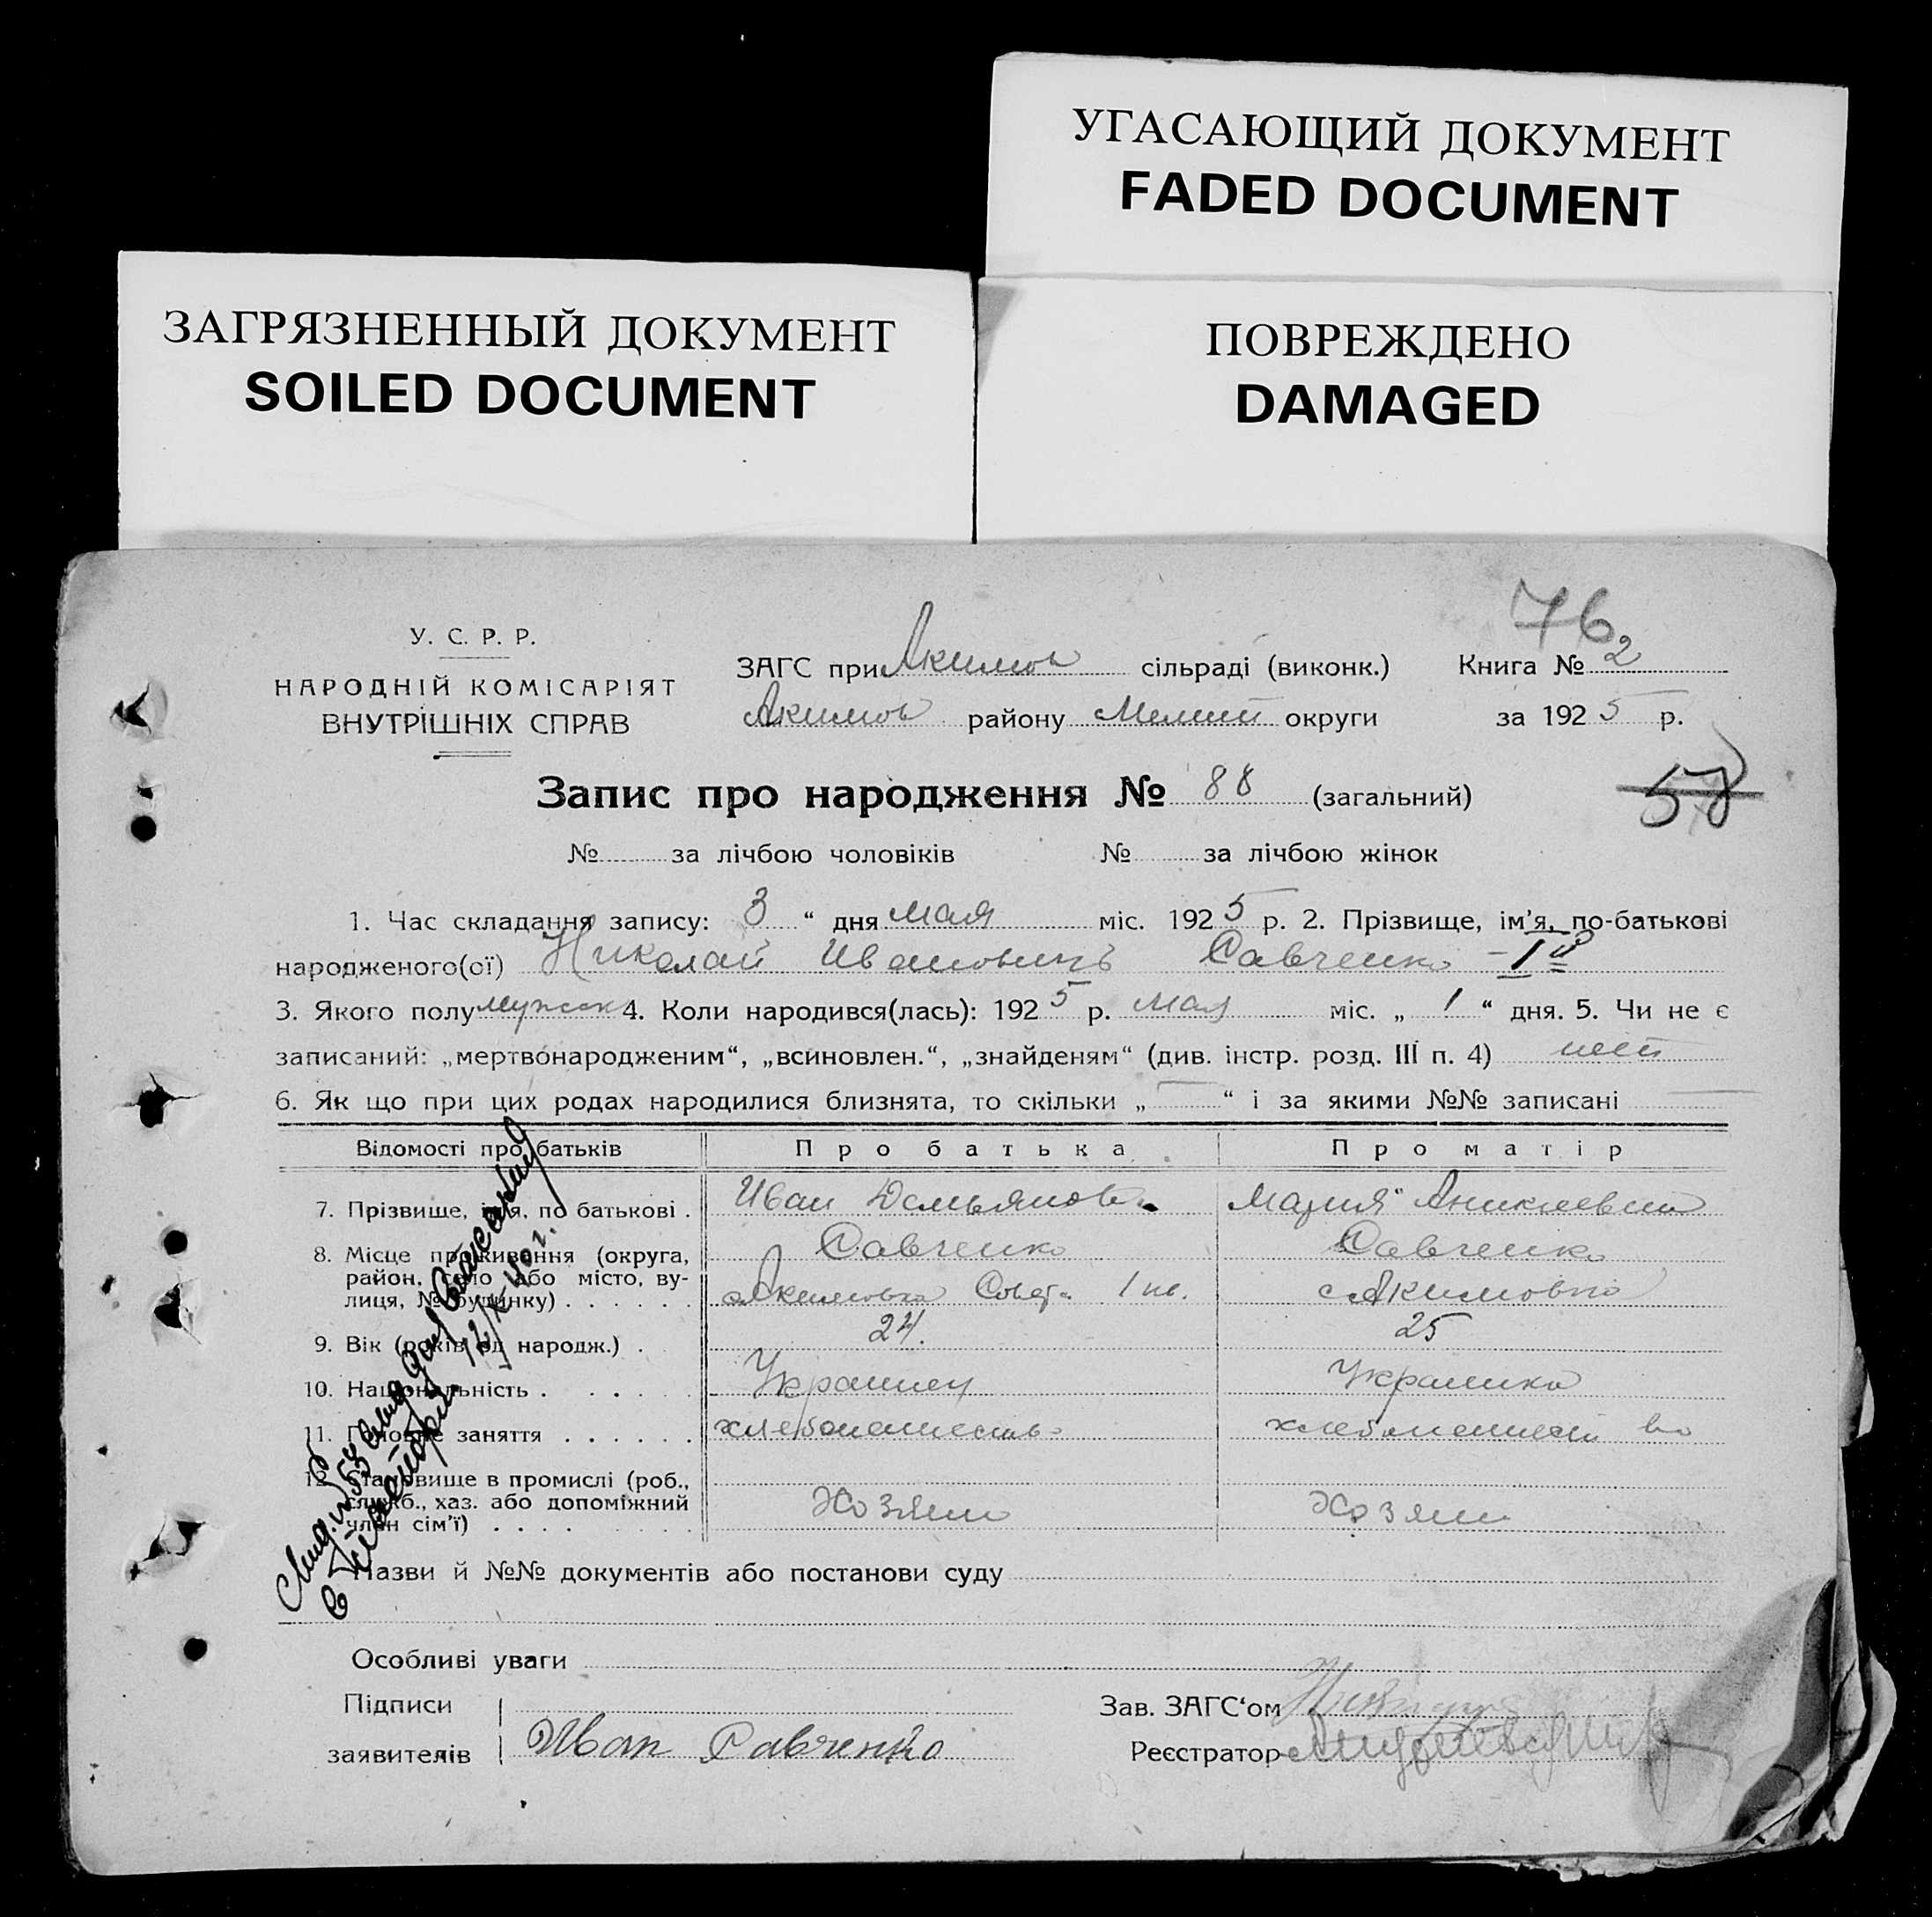 УГАСАЮЩИЙ ДОКУМЕНТ
FADED DOCUMENT
ЗАГРЯЗНЕННЫЙ ДОКУМЕНТ
SOILED DOCUMENT
ПОВРЕЖДЕНО
DAMAGED
76
У. С. Р. Р.
НАРОДНІЙ КОМІСАРІЯТ
ВНУТРІШНІХ СПРАВ
ЗАГС при Акимов сільраді (виконк.) Книга № 2
Акимов району Мелит округи за 1925 р.
57
Запис про народження № 88 (загальний)
№ за лічбою чоловіків № за лічбою жінок
1. Час складання запису: 3 “ дня мая міс. 1925 р. 2. Прізвище, ім'я, по-батькові
народженого(ої) Николай Ивановичъ Савченко - 1й
3. Якого полу мужск 4. Коли народився(лась): 1925 р. мая міс. „ 1 “ дня. 5. Чи не є
записаний: „мертвонародженим“, „всиновлен.“, „знайденям“ (див. інстр. розд. III п. 4) нет
6. Як що при цих родах народилися близнята, то скільки „ “ і за якими №№ записані
Відомості про батьків Про батька Про матір
7. Прізвище, ім'я, по батькові . Иван Демьянов. Мария Аникеевна
Савченко Савченко
8. Місце проживання (округа, район, село або місто, ву-лиця, № будинку) . . . . . . Акимовка 1 кв. с Акимовка
9. Вік (років од народж.) . 24. 25
10. Національність . . . . . Украинец Украинка
11. Головне заняття . . . . . . хлебопашество хлебопашество
12. Становище в промислі (роб., служб., хаз. або допоміжний член сім'ї) . . . . Хозяин Хозяин
Назви й №№ документів або постанови суду
Особливі уваги
Підписи
заявителів Иван Савченко
Зав. ЗАГС‘ом
Реєстратор